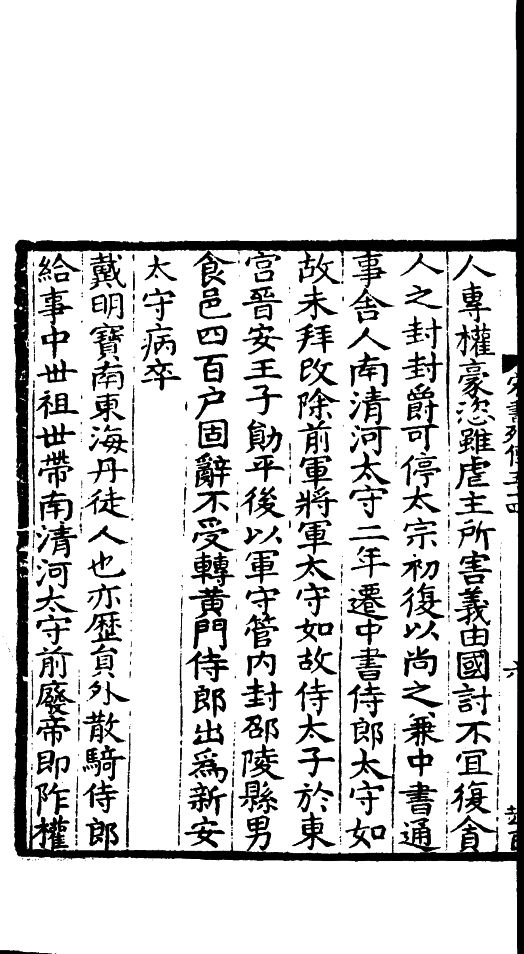 人專權豪恣雖虐主所害義由國討不宜復貪
人之封封爵可停太宗初復以尚之兼中書通
事舍人南清河太守二年遷中書侍郎太守如
故未拜改除前軍將軍太守如故侍太子於東
宮晉安王子勛平後以軍守管内封邵陵縣男
食邑四百户固辭不受轉黃門侍郎出爲新安
太守病卒
戴明寶南東海丹徒人也亦歷員外散騎侍郎
給事中世祖世帶南清河太守前廢帝即阼權